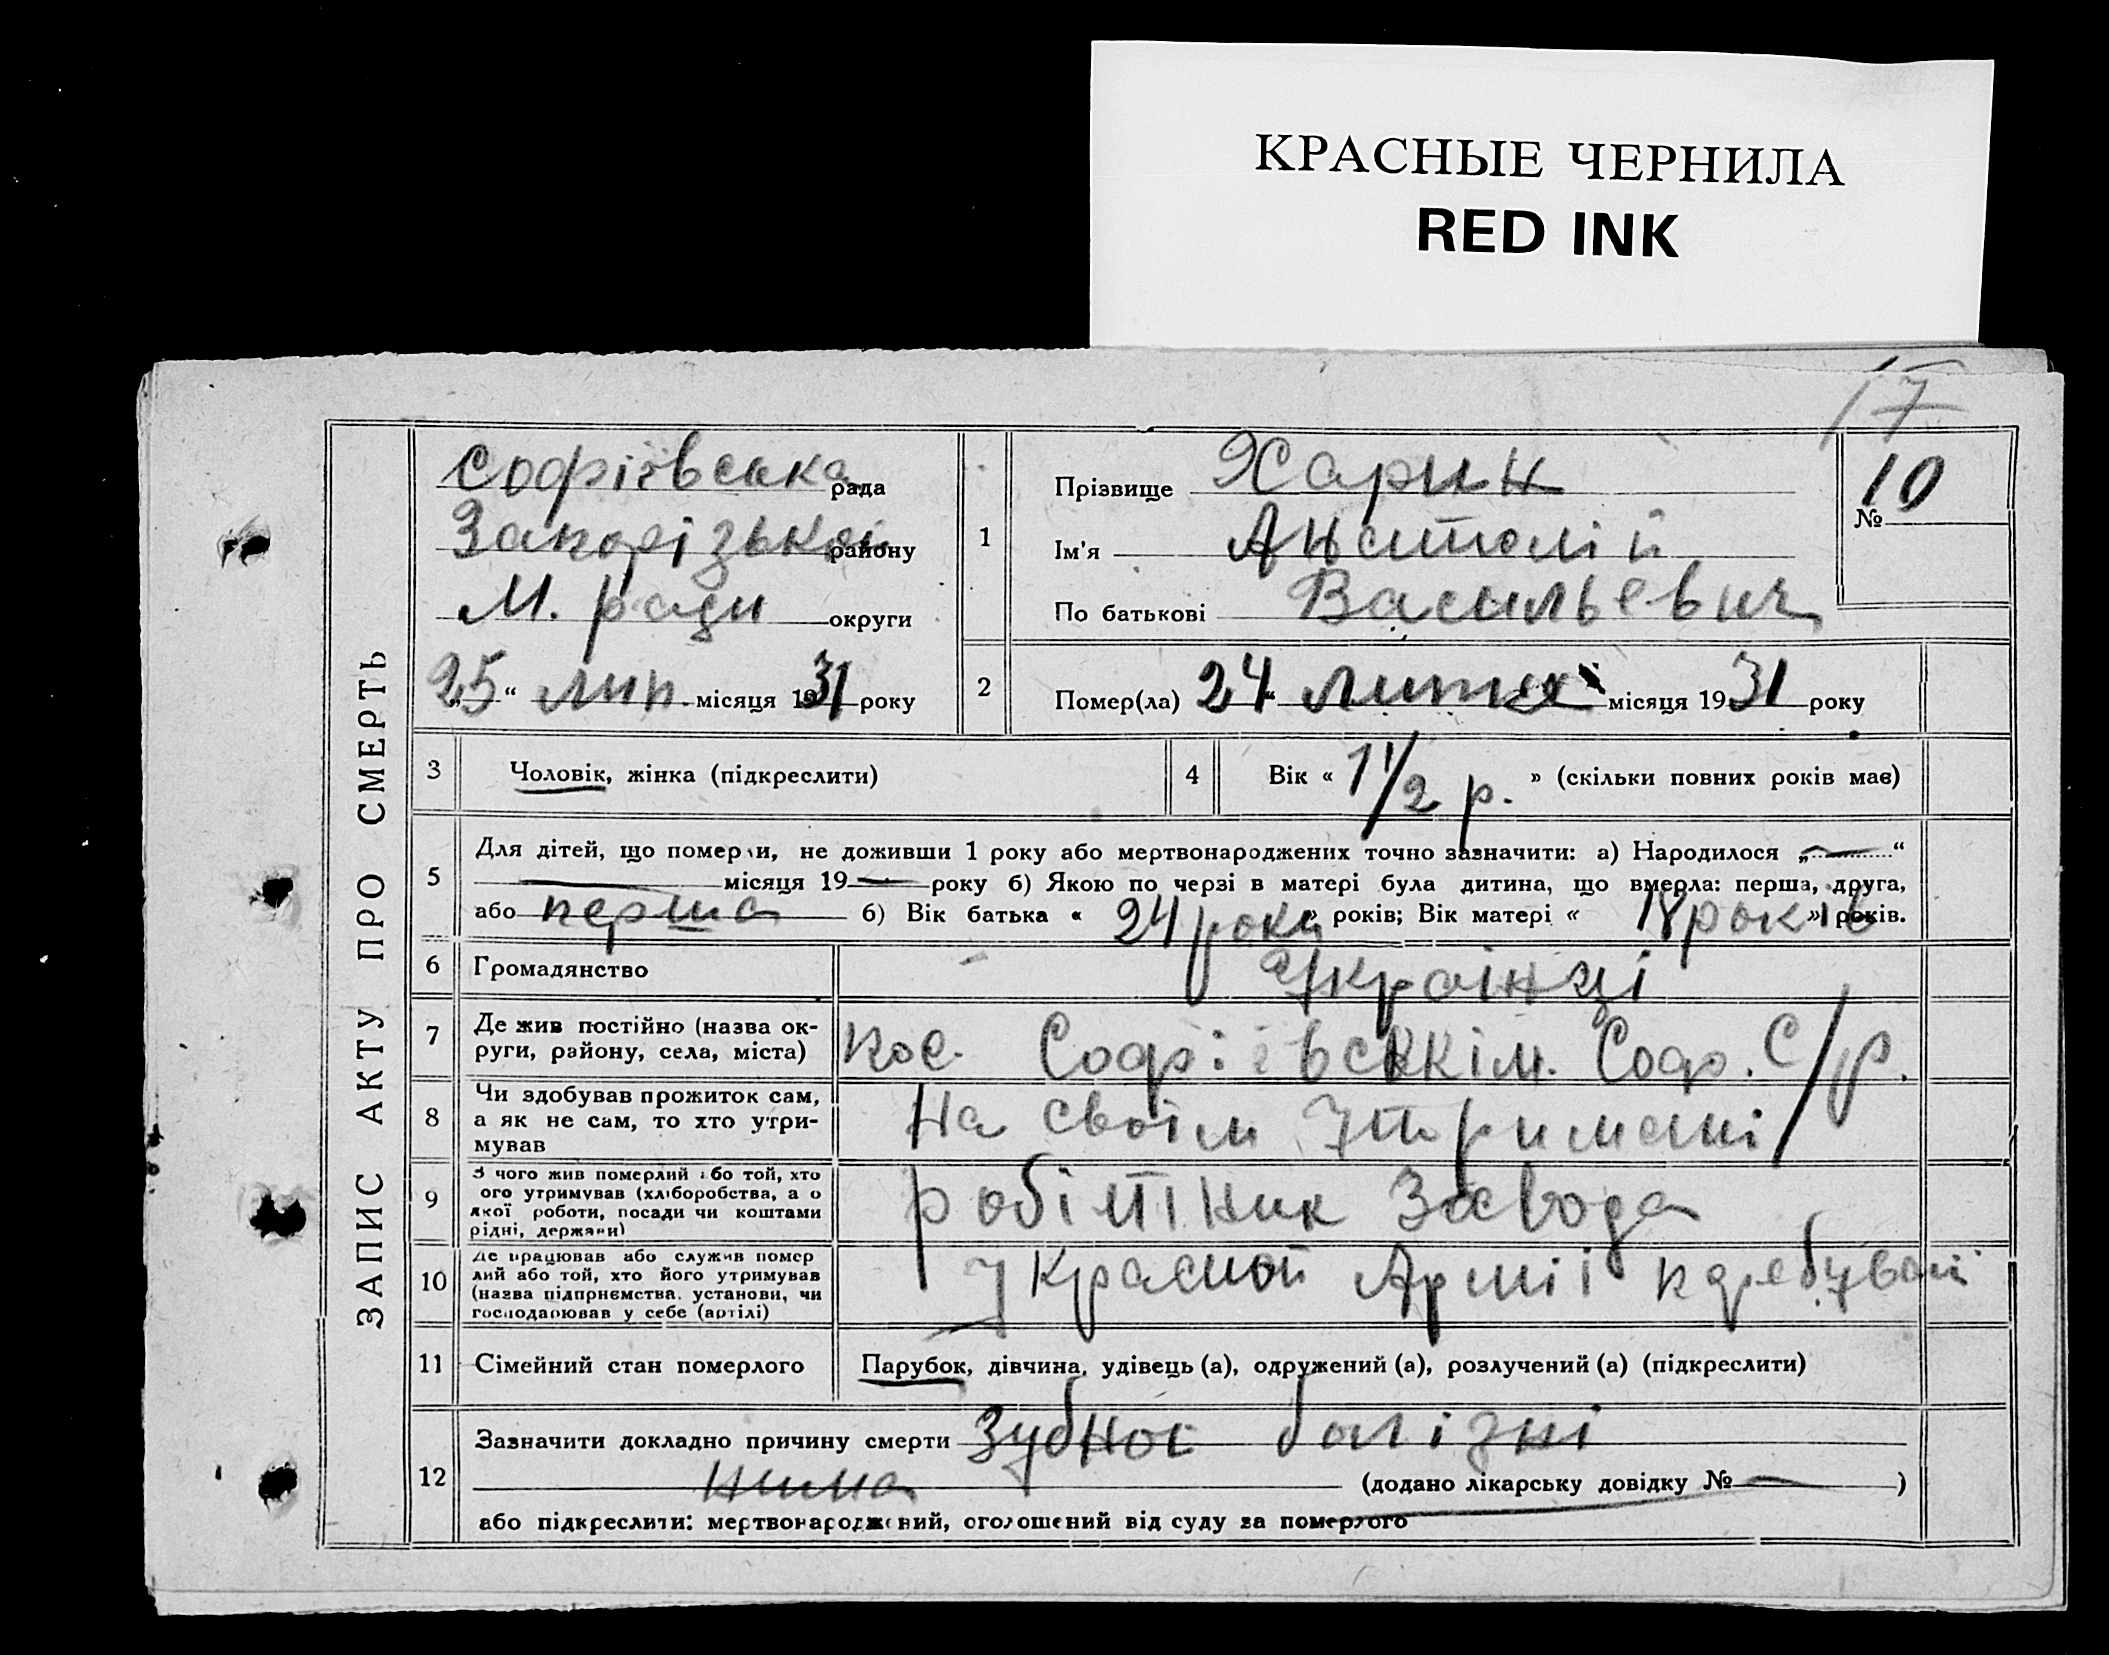 КРАСНЫЕ ЧЕРНИЛА
RED INK
17
ЗАПИС АКТУ ПРО СМЕРТЬ
Софіївська рада
Запорізької району
М. ради округи
25 “ лип. місяця 1931 року
1
Прізвище Харин
Ім'я Анатолій
По батькові Васильевич
№ 10
2
Помер(ла) 24 “ липня місяця 1931 року
3 Чоловік, жінка (підкреслити)
4 Вік « 1 1/2 р. » (скільки повних років має)
5
Для дітей, що померли, не доживши 1 року або мертвонароджених точно зазначити: а) Народилося „ “
місяця 19 року б) Якою по черзі в матері була дитина, що вмерла: перша, друга,
або перша б) Вік батька « 24 роки » років; Вік матері « 18 років » років.
6 Громадянство Українці
7 Де жив постійно (назва округи, району, села, міста) Софіївскім. Соф. С/р.
8 Чи здобував прожиток сам, а як не сам, то хто утримував На своїм утримані
9 З чого жив померлий або той, хто ого утримував (хліборобства, а о якої роботи, посади чи коштами рідні, держави) робітник Завода
10 Де працював або служив помер лий або той, хто його утримував (назва підприємства, установи, чи господарював у себе (артілі) у Красной Армії
11 Сімейний стан померлого Парубок, дівчина, удівець (а), одружений (а), розлучений (а) (підкреслити)
12
Зазначити докладно причину смерти Зубної болізні
нима (додано лікарську довідку № )
або підкреслити: мертвонароджений, оголошений від суду за померлого